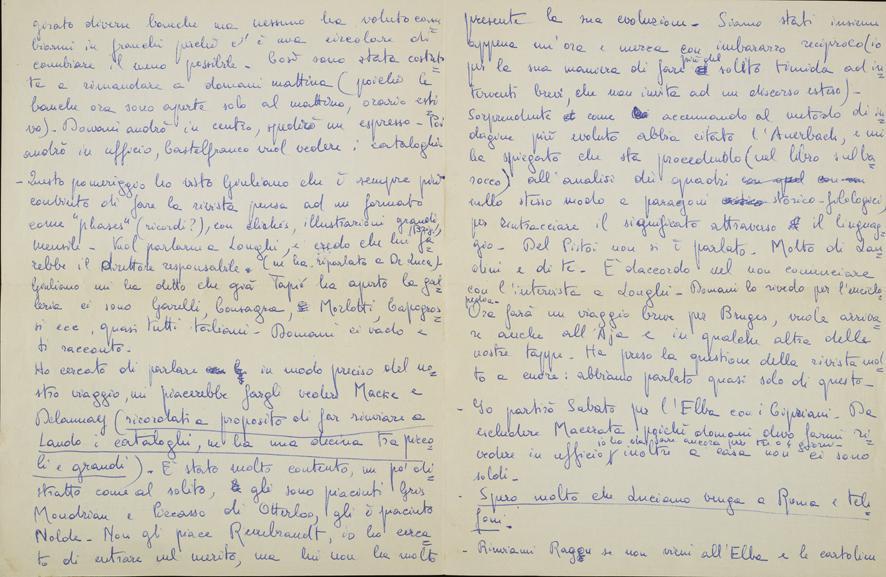 girato diverse banche ma nessuno ha voluto cam
biarmi in franchi perché c'è una circolare di
cambiare il meno possibile - Così sono stata costret=
ta a rimandare a domani mattina (poiché le
banche ora sono aperte solo al mattino, orario esti
vo) - Domani andrò in centro, spedirò un espresso - Poi
andrò in ufficio, Castelfranco vuol vedere i cataloghi
- Questo pomeriggio ho visto Giuliano che è sempre più
convinto di fare la rivista pensa ad un formato
come "phases" (ricordi?), con clichés, illustrazioni grandi,
mensile - Vuol parlarne a Longhi, e credo che lui fa=
rebbe il direttore responsabile. (ne ha riparlato a De Luca)
Giuliano mi ha detto che già Tapié ha aperto la gal=
leria ci sono Garelli, Consagra, Morlotti, Capogros=
si ecc, quasi tutti italiani - Domani ci vado e
ti racconto.
Ho cercato di parlare in modo preciso del no=
stro viaggio, mi piacerebbe fargli vedere Macke e
Delaunay (ricordati a proposito di far rinviare a
Lando i cataloghi, ne ha una decina tra picco=
li e grandi) - È stato molto contento, un po' di=
stratto come al solito, gli sono piaciuti Gris
Mondrian e Picasso di Otterloo, gli è piaciuto
Nolde - Non gli piace Rembrandt, io ho cerca=
to di entrare nel merito, ma lui non ha molto
presente la sua evoluzione - Siamo stati insieme
appena un'ora e mezza con imbarazzo reciproco (io
per la sua maniera di fare più del solito timida ad in=
terventi brevi, che non invita ad un discorso esteso) -
Sorprendente come accennando al metodo di in=
dagine più evoluto abbia citato l'Auerbach, e mi
ha spiegato che sta procedendo (nel libro sul ba
rocco) all'analisi dei quadri
nello stesso modo a paragoni storico-filologici,
per rintracciare il significato attraverso il linguag=
gio - Del Pistoi non si è parlato - Molto di Lan=
dini e di te - È daccordo nel non cominciare
con l'intervista a Longhi - Domani lo rivedo per l'enciclo
pedia -
Ora farà un viaggio breve per Bruges, vuole arriva=
re anche all'Aja e in qualche altra delle
nostre tappe - Ha preso la questione della rivista mol=
to a cuore: abbiamo parlato quasi solo di questo -
- Io partirò Sabato per l'Elba con i Cipriani - Da
escludere Macerata poiché domani devo farmi ri=
vedere in ufficio, inoltre a casa non ci sono
soldi -
- Spero molto che Luciano venga a Roma e tele
foni -
- Rinviami se non vieni all'Elba e le cartoline